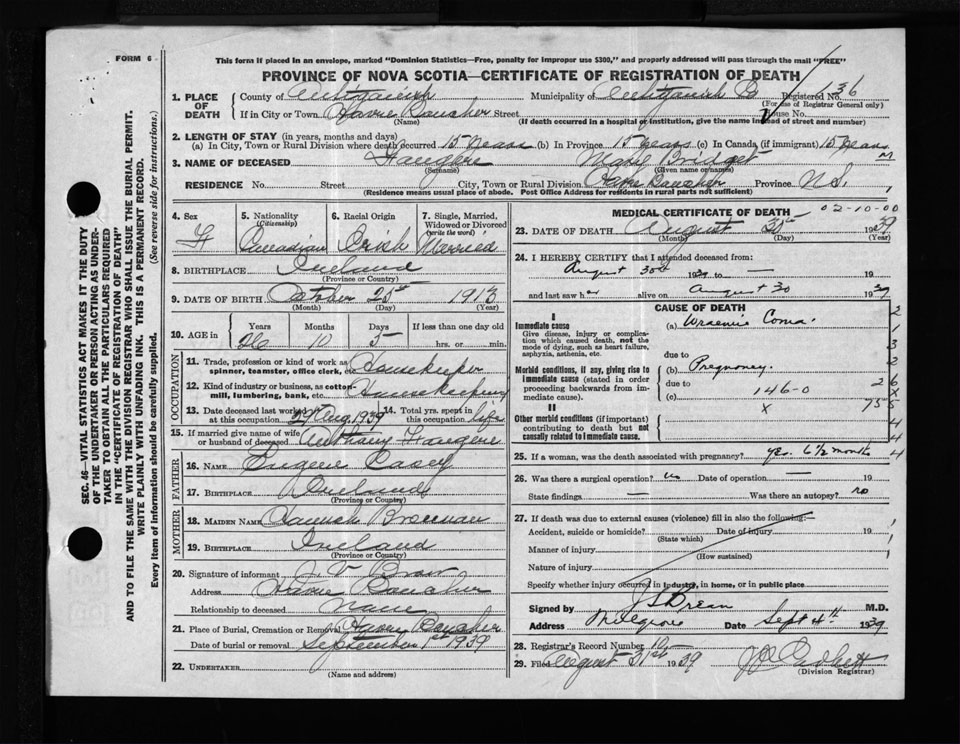 FORM 6
This form if placed in an envelope, marked "Dominion Statistics—Free, penalty for improper use $300," and properly addressed will pass through the mail "FREE"
PROVINCE OF NOVA SCOTIA—CERTIFICATE OF REGISTRATION OF DEATH
1. PLACE OF DEATH
County of Antigonish Municipality of Antigonish Co Registered No. 36
(For use of Registrar General only)
If in City or Town Havre Boucher Street House No.
(Name) (If death occurred in a hospital or institution, give the name instead of street and number)
2. LENGTH OF STAY (in years, months and days)
(a) In City, Town or Rural Division where death occurred 15 years (b) In Province 15 years (c) In Canada (if immigrant) 15 years
3. NAME OF DECEASED Mary Bridget
(Surname) (Given name or names)
RESIDENCE No. Street City, Town or Rural Division Havre Boucher Province N.S.
(Residence means usual place of abode. Post Office Address for residents in rural parts not sufficient)
4. Sex
F
5. Nationality
(Citizenship)
Canadian
6. Racial Origin
Irish
7. Single, Married, Widowed or Divorced
(write the word)
Married
8. BIRTHPLACE Ireland
(Province or Country)
9. DATE OF BIRTH October 25th 1913
(Month) (Day) (Year)
10. AGE in Years Months Days If less than one day old
26 10 5 hrs. or min.
OCCUPATION
11. Trade, profession or kind of work as spinner, teamster, office clerk, etc. Housekeeper
12. Kind of industry or business, as cotton-mill, lumbering, bank, etc. Housekeeping
13. Date deceased last worked at this occupation 29 Aug 1939 14. Total yrs. spent in this occupation life
15. If married give name of wife or husband of deceased Anthony
FATHER
16. NAME Eugene Casey
17. BIRTHPLACE Ireland
(Province or Country)
MOTHER
18. MAIDEN NAME Hannah Brennan
19. BIRTHPLACE Ireland
(Province or Country)
20. Signature of informant J. V.
Address Havre Boucher
Relationship to deceased None
21. Place of Burial, Cremation or Removal Havre Boucher
Date of burial or removal September 1st 1939
22. UNDERTAKER
(Name and address)
MEDICAL CERTIFICATE OF DEATH 02-10-00
23. DATE OF DEATH August 30th 1939
(Month) (Day) (Year)
24. I HEREBY CERTIFY that I attended deceased from:
August 30th 1939 to — 19
and last saw her alive on August 30 1939
CAUSE OF DEATH
I
Immediate cause
Give disease, injury or complication which caused death, not the mode of dying, such as heart failure, asphyxia, asthenia, etc.
(a) Uraemic Coma.
due to
Morbid conditions, if any, giving rise to immediate cause (stated in order proceeding backwards from immediate cause).
(b) Pregnancy.
due to
(c) 146-0
x
II
Other morbid conditions (if important) contributing to death but not causally related to immediate cause.
25. If a woman, was the death associated with pregnancy? yes. 6 1/2 months
26. Was there a surgical operation? no Date of operation — 19
State findings — Was there an autopsy? no
27. If death was due to external causes (violence) fill in also the following:—
Accident, suicide or homicide? Date of injury 19
(State which)
Manner of injury
(How sustained)
Nature of injury
Specify whether injury occurred in industry, in home, or in public place
Signed by M.D.
Address Mulgrave Date Sept 4th 1939
28. Registrar's Record Number 10
29. Filed August 31st 1939
(Division Registrar)
SEC. 46—VITAL STATISTICS ACT MAKES IT THE DUTY OF THE UNDERTAKER OR PERSON ACTING AS UNDERTAKER TO OBTAIN ALL THE PARTICULARS REQUIRED IN THE "CERTIFICATE OF REGISTRATION OF DEATH" AND TO FILE THE SAME WITH THE DIVISION REGISTRAR WHO SHALL ISSUE THE BURIAL PERMIT.
WRITE PLAINLY WITH UNFADING INK. THIS IS A PERMANENT RECORD.
Every item of information should be carefully supplied. (See reverse side for instructions.)